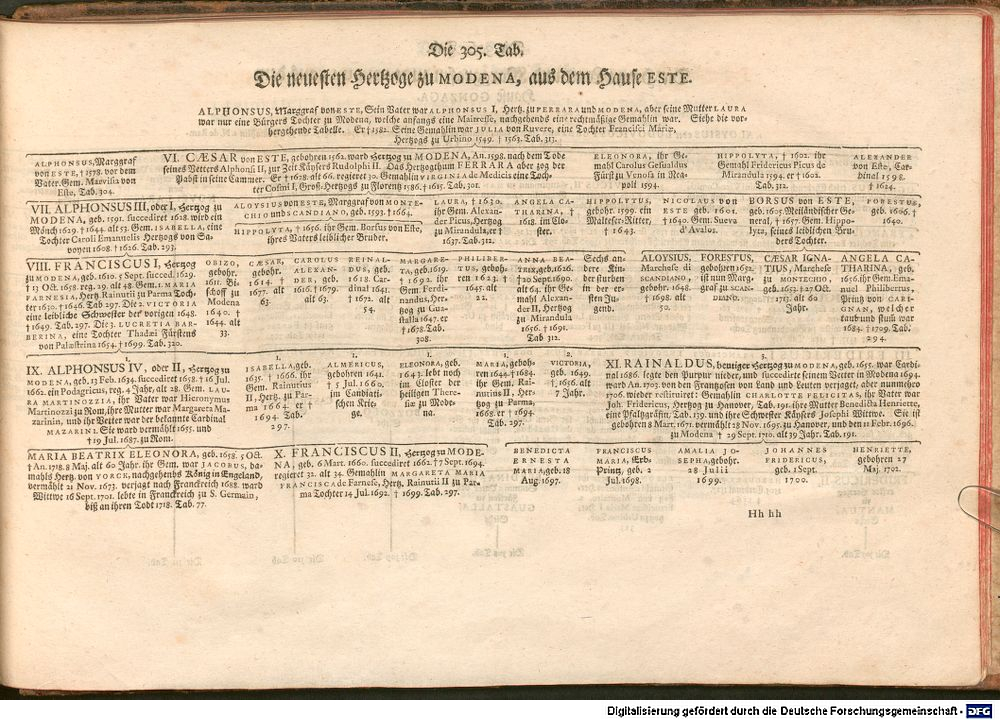 Die 305. Tab.
Die neuesten Hertzoge zu MODENA, aus dem Hause ESTE.
ALPHONSUS, Marggraf von ESTE, Sein Vater war ALPHONSUS I, Hertz. zu FERRARA und MODENA, aber seine Mutter LAURA
war nur eine Bürgers Tochter zu Modena, welche anfangs eine Mairesse, nachgehends eine rechtmäßige Gemahlin war. Siehe die vor-
hergehende Tabelle. Er † 1582. Seine Gemahlin war JULIA von Ruvere, eine Tochter Francisci Mariæ,
Hertzogs zu Urbino 1549. † 1563. Tab. 313.
ALPHONSUS, Marggraf
von ESTE, † 1578. vor dem
Vater. Gem. Marvisia von
Este, Tab. 304.
VI. CÆSAR von ESTE, gebohren 1562. ward Hertzog zu MODENA, An. 1598. nach dem Tode
seines Vetters Alphonsi II, zur Zeit Käysers Rudolphi II. Das Hertzogthum FERRARA aber zog der
Pabst in seine Cammer. Er † 1628. alt 66. regieret 30. Gemahlin VIRGINIA de Medicis eine Toch-
ter Cosmi I, Groß-Hertzogs zu Florentz 1586. † 1615. Tab. 301.
ELEONORA, ihr Ge-
mahl Carolus Gesualdus
Fürst zu Venosa in Nea-
poli 1594.
HIPPOLYTA, † 1602. ihr
Gemahl Fridericus Picus de
Mirandula 1594. er † 1602.
Tab. 312.
ALEXANDER
von Este, Car-
dinal 1598.
† 1624.
VII. ALPHONSUS III, oder I, Hertzog zu
MODENA, geb. 1591. succediret 1618. wird ein
Münch 1629. † 1644. alt 53. Gem. ISABELLA, eine
Tochter Caroli Emanuelis Hertzogs von Sa-
voyen 1608. † 1626. Tab. 293.
ALOYSIUS von ESTE, Marggraf von MONTE-
CHIO und SCANDIANO, geb. 1593. † 1664.
HIPPOLYTA, † 1656. ihr Gem. Borsus von Este,
ihres Vaters leiblicher Bruder.
LAURA, † 1630.
ihr Gem. Alexan-
der Picus, Hertzog
zu Mirandula, er †
1637. Tab. 312.
ANGELA CA-
THARINA, †
1618. im Clo-
ster.
HIPPOLYTUS,
gebohr. 1599. ein
Malteser-Ritter,
† 1643.
NICOLAUS von
ESTE geb. 1601.
† 1640. Gem. Sueva
d'Avalos.
BORSUS von ESTE,
geb. 1605. Meiländischer Ge-
neral, † 1657. Gem. Hippo-
lyta, seines leiblichen Bru-
ders Tochter.
FORESTUS,
geb. 1606. †
1640.
VIII. FRANCISCUS I, Hertzog
zu MODENA, geb. 1610. 5 Sept. succed. 1629.
† 13 Oct. 1658. reg. 29. alt 48. Gem. 1. MARIA
FARNESIA, Hertz. Rainutii zu Parma Toch-
ter 1630. † 1646. Tab. 297. Die 2. VICTORIA
eine leibliche Schwester der vorigen 1648.
† 1649. Tab. 297. Die 3. LUCRETIA BAR-
BERINA, eine Tochter Thadæi Fürstens
von Palæstrina 1654. † 1699. Tab. 320.
OBIZO,
gebohr.
1611. Bi-
schoff zu
Modena
1640. †
1644. alt
33.
CÆSAR,
gebohr.
1614. †
1677. alt
63.
CAROLUS
ALEXAN-
DER, geb.
1616. † 1679.
alt 63.
REINAL-
DUS, geb.
1618. Car-
dinal 1641.
† 1672. alt
54.
MARGARE-
TA, geb. 1619.
† 1692. ihr
Gem. Ferdi-
nandus, Her-
tzog zu Gua-
stalla 1647. er
† 1678. Tab.
308.
PHILIBER-
TUS, gebohr-
ren 1623. †
1645. alt
22.
ANNA BEA-
TRIX, geb. 1626.
† 20 Sept. 1690.
alt 64. ihr Ge-
mahl Alexan-
der II, Hertzog
zu Mirandula
1656. † 1691.
Tab 312.
Sechs an-
dere Kin-
der sturben
in der er-
sten Ju-
gend.
ALOYSIUS,
Marchese di
SCANDIANO,
gebohr. 1648.
† 1698. alt
50.
FORESTUS,
gebohren 1652.
ist nun Marg-
graf zu SCAN-
DIANO.
CÆSAR IGNA-
TIUS, Marchese
zu MONTECHIO,
geb. 1653. † 27 Oct.
1713. alt 60
Jahr.
ANGELA CA-
THARINA, geb.
1656. ihr Gem. Ema-
nuel Philibertus,
Printz von CARI-
GNAN, welcher
taub und stum war
1684. † 1709. Tab.
294.
1.
IX. ALPHONSUS IV, oder II, Hertzog zu
MODENA, geb. 13 Febr. 1634. succediret 1658. † 16 Jul.
1662. ein Podagricus, reg. 4 Jahr, alt 28. Gem. LAU-
RA MARTINOZZIA, ihr Vater war Hieronymus
Martinozzi zu Rom, ihre Mutter war Margareta Ma-
zarinin, und ihr Vetter war der bekannte Cardinal
MAZARINI. Sie ward vermählt 1655. und
† 19 Jul. 1687. zu Rom.
1.
ISABELLA, geb.
1635. † 1666. ihr
Gem. Rainutius
II, Hertz. zu Par-
ma 1664. er †
1694. Tab.
297.
1.
ALMERICUS,
gebohren 1641.
† 5 Jul. 1660.
im Candiati-
schen Krie-
ge.
1.
ELEONORA, geb.
1643. lebt noch
im Closter der
heiligen There-
siæ zu Mode-
na.
1.
MARIA, geboh-
ren 1644. † 1684.
ihr Gem. Rai-
nutius II, Her-
tzog zu Parma,
1668. er † 1694.
Tab. 297.
2.
VICTORIA,
geb. 1649.
† 1656. alt
7 Jahr.
3.
XI. RAINALDUS, heutiger Hertzog zu MODENA, geb. 1655. war Cardi-
nal 1686. legte den Purpur nieder, und succedirte seinem Vetter in Modena 1694.
ward An. 1703. von den Frantzosen von Land und Leuten verjaget, aber nunmehro
1706. wieder restituiret: Gemahlin CHARLOTTE FELICITAS, ihr Vater war
Joh. Fridericus, Hertzog zu Hanover, Tab. 191. ihre Mutter Benedicta Henriette,
eine Pfaltzgräfin, Tab. 139. und ihre Schwester Käysers Josephi Wittwe. Sie ist
gebohren 8 Mart. 1671. vermählt 28 Nov. 1695. zu Hanover, und den 11 Febr. 1696.
zu Modena † 29 Sept. 1710. alt 39 Jahr. Tab. 191.
MARIA BEATRIX ELEONORA, geb. 1658. 5 Oct.
† An. 1718. 8 Maj. alt 60 Jahr. ihr Gem. war JACOBUS, da-
mahls Hertz. von YORCK, nachgehends König in Engeland,
vermählt 21 Nov. 1673. verjagt nach Franckreich 1688. ward
Wittwe 16 Sept. 1701. lebte in Franckreich zu S. Germain,
biß an ihren Todt 1718. Tab. 77.
X. FRANCISCUS II, Hertzog zu MODE-
NA, geb. 6 Mart. 1660. succediret 1662. † 7 Sept. 1694.
regieret 32. alt 34. Gemahlin MARGARETA MARIA
FRANCISCA de Farnese, Hertz. Rainutii II zu Par-
ma Tochter 14 Jul. 1692. † 1699. Tab. 297.
BENEDICTA
ERNESTA
MARIA, geb. 18
Aug. 1697.
FRANCISCUS
MARIA, Erb-
Printz, geb. 2
Jul. 1698.
AMALIA JO-
SEPHA, gebohr.
28 Julii
1699.
JOHANNES
FRIDERICUS,
geb. 1 Sept.
1700.
HENRIETTE,
gebohren 27
Maj. 1702.
Hh hh
Digitalisierung gefördert durch die Deutsche Forschungsgemeinschaft - DFG